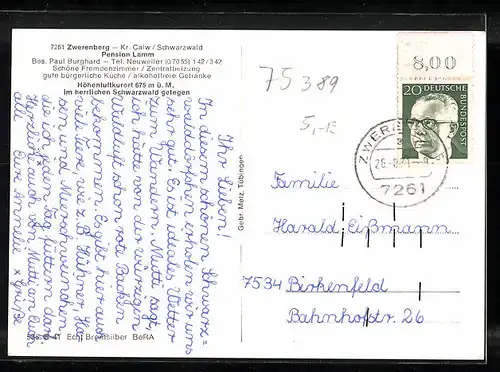 7261 Zwerenberg – Kr. Calw / Schwarzwald
Pension Lamm
Bes. Paul Burghard – Tel. Neuweiler (07055) 142/342
Schöne Fremdenzimmer / Zentralheizung
gute bürgerliche Küche / alkoholfreie Getränke
Höhenluftkurort 675 m ü. M.
Im herrlichen Schwarzwald gelegen
Ihr Lieben!
In diesem schönen Schwarz-
walddörfchen erholen wir uns
sehr gut. Es ist ideales Wetter
zum Wandern. Mutti sagt,
Waldluft schon rote Backen
bekommen. Es gibt hier auch
viele Tiere, wie z.B. Hühner, Ha-
sen und Meerschweinchen
die ich jeden Tag füttern darf.
Herzlichst auch von Mutti an Euch
alle Eure Annelie Grüße
Gebr. Metz, Tübingen
Echt Bromsilber BeRA
75389
5,-E
8,00
20
DEUTSCHE
BUNDESPOST
7261
Familie
Harald Eißmann
7534 Birkenfeld
Bahnhofstr. 26